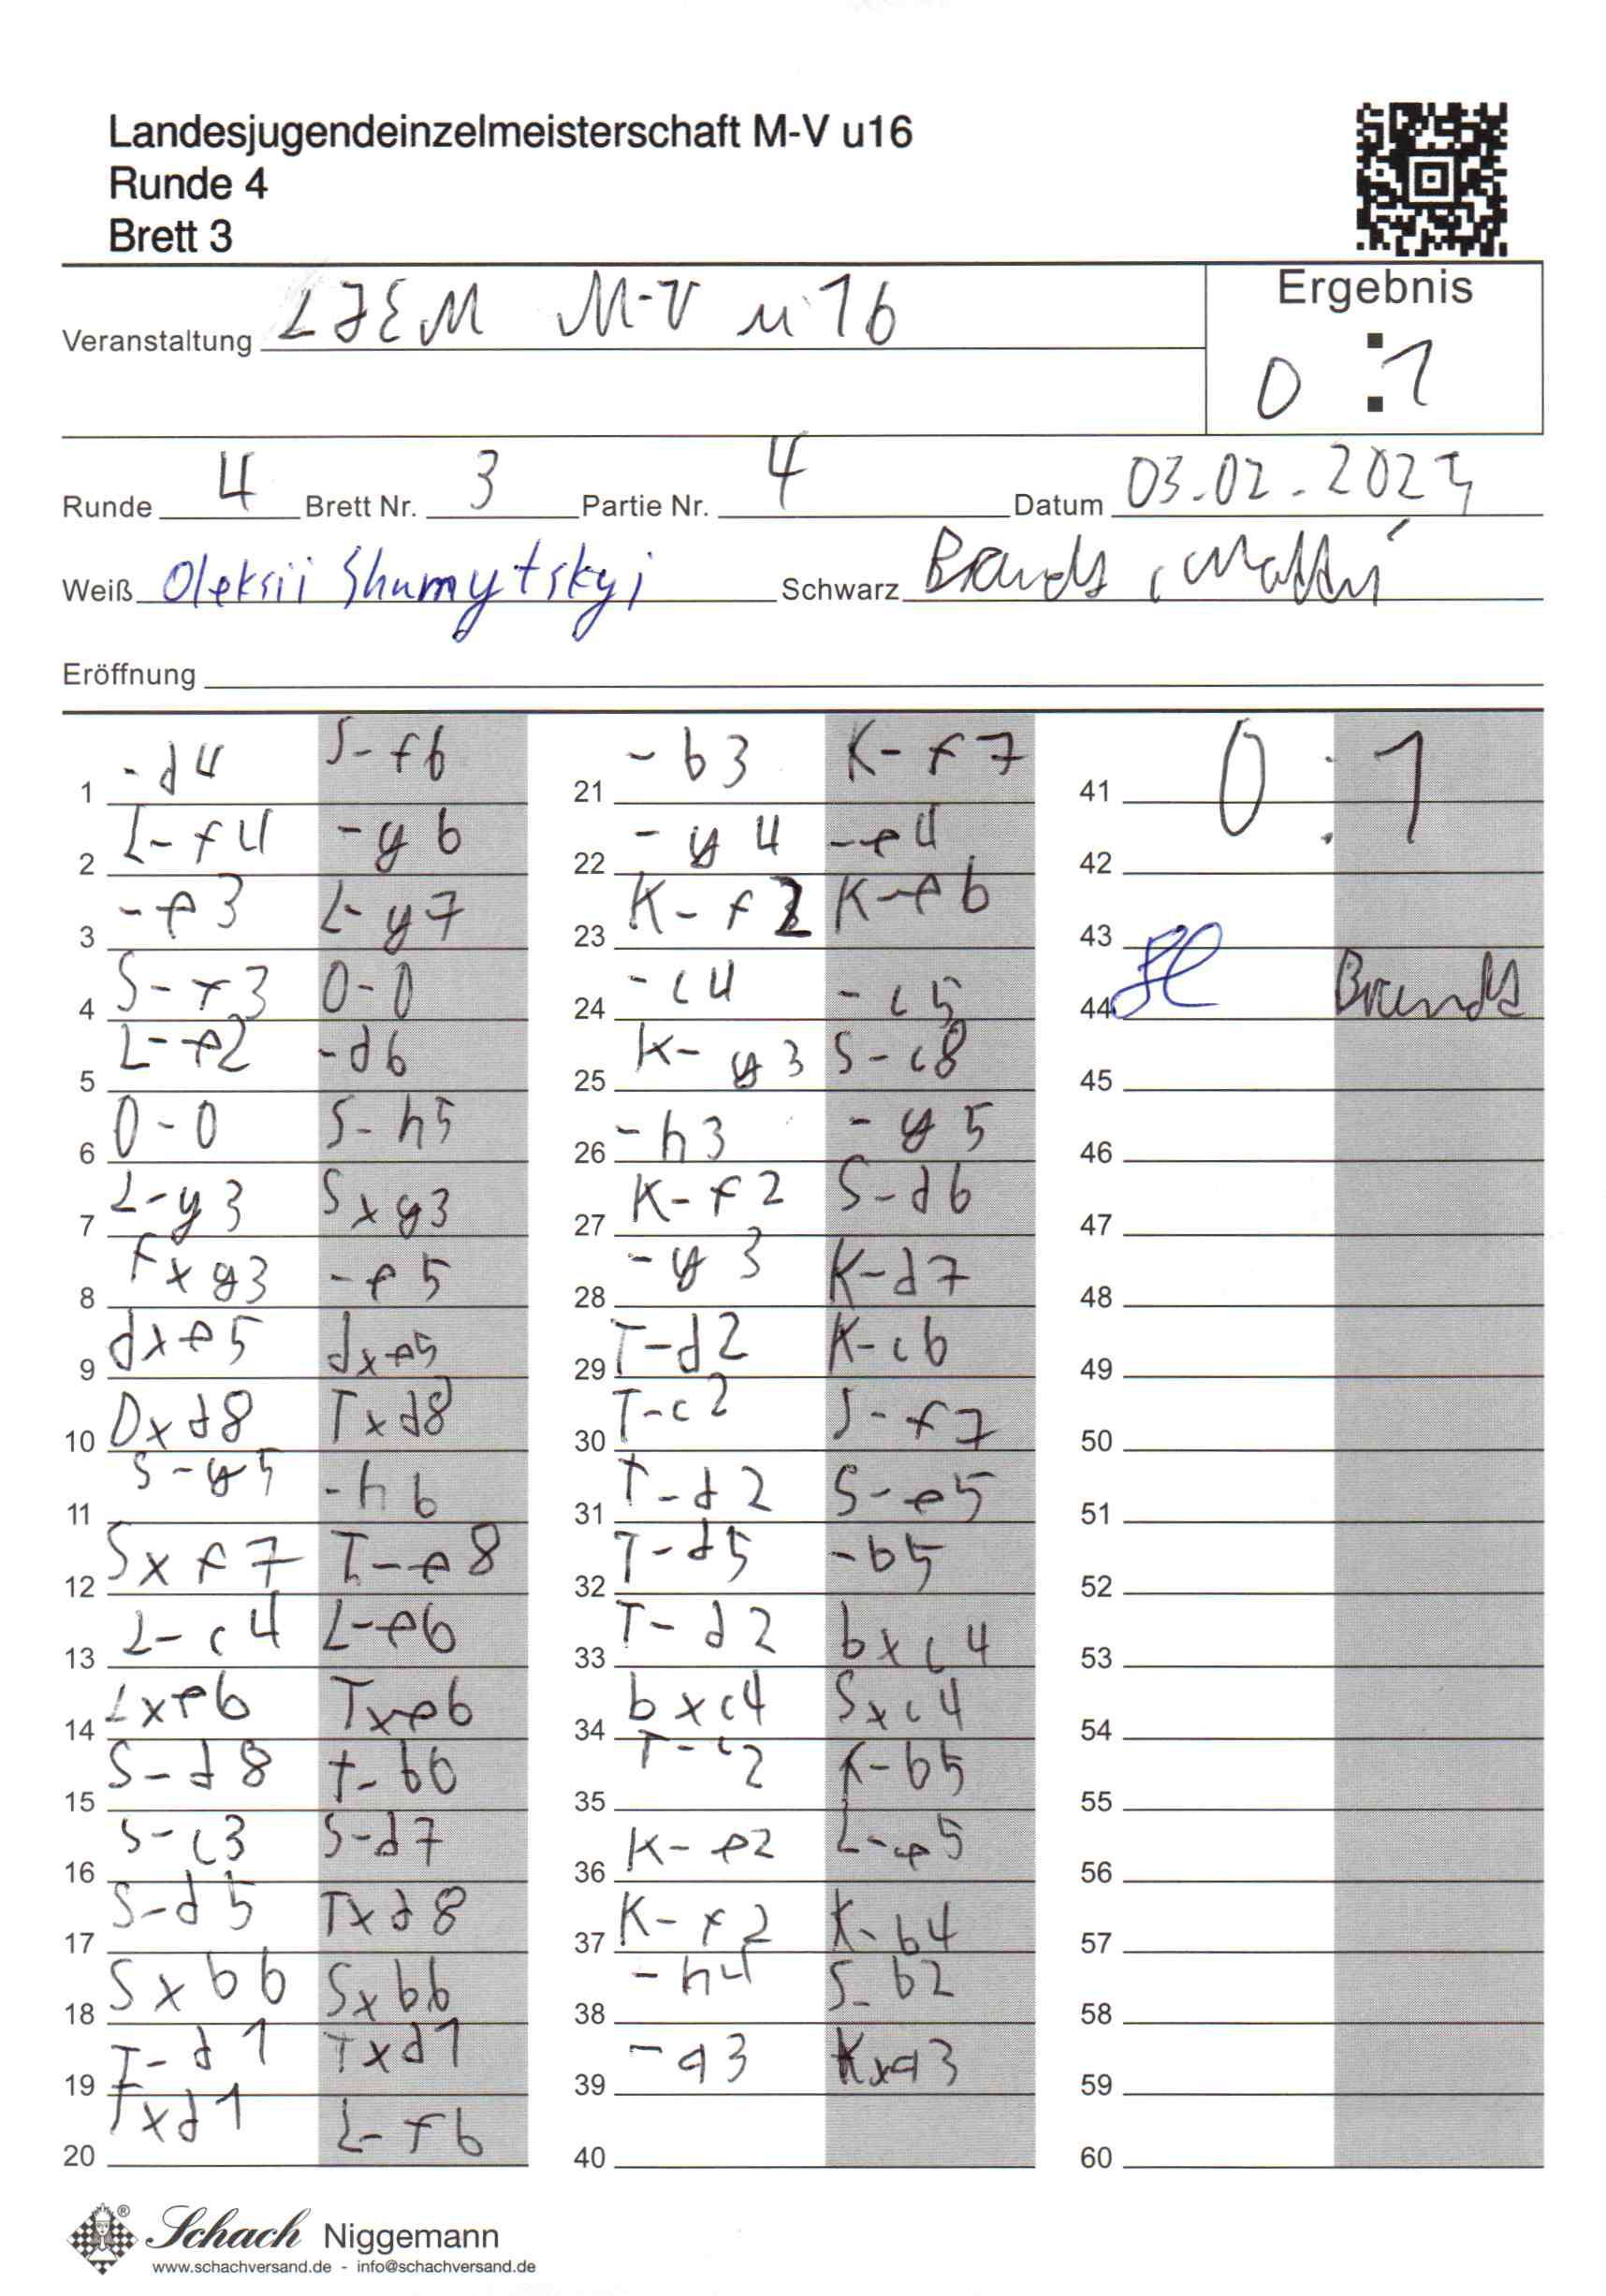 Landesjugendeinzelmeisterschaft M-V u16
Runde 4
Brett 3
Veranstaltung LJEM M-V u16
Ergebnis
0 : 1
Runde 4 Brett Nr. 3 Partie Nr. 4 Datum 03.02.2025
Weiß Oleksii Shumytskyi Schwarz Brandt, Mattis
Eröffnung
1 -d4 S-f6
2 L-f4 -g6
3 -e3 L-g7
4 S-f3 0-0
5 L-e2 -d6
6 0-0 S-h5
7 L-g3 Sxg3
8 Fxg3 -e5
9 dxe5 dxe5
10 Dxd8 Txd8
11 S-g5 -h6
12 Sxf7 T-e8
13 L-c4 L-e6
14 Lxe6 Txe6
15 S-d8 T-b6
16 S-c3 S-d7
17 S-d5 Txd8
18 Sxb6 Sxb6
19 T-d1 Txd1
20 Txd1 L-f6
21 -b3 K-f7
22 -g4 -e4
23 K-f2 K-e6
24 -c4 -c5
25 K-g3 S-c8
26 -h3 -g5
27 K-f2 S-d6
28 -g3 K-d7
29 T-d2 K-c6
30 T-c2 S-f7
31 T-d2 S-e5
32 T-d5 -b5
33 T-d2 bxc4
34 bxc4 Sxc4
35 T-c2 K-b5
36 K-e2 L-e5
37 K-f2 K-b4
38 -h4 S-b2
39 -a3 Kxa3
40
41 0 : 1
42
43
44 Brandt
45
46
47
48
49
50
51
52
53
54
55
56
57
58
59
60
Schach Niggemann
www.schachversand.de - info@schachversand.de